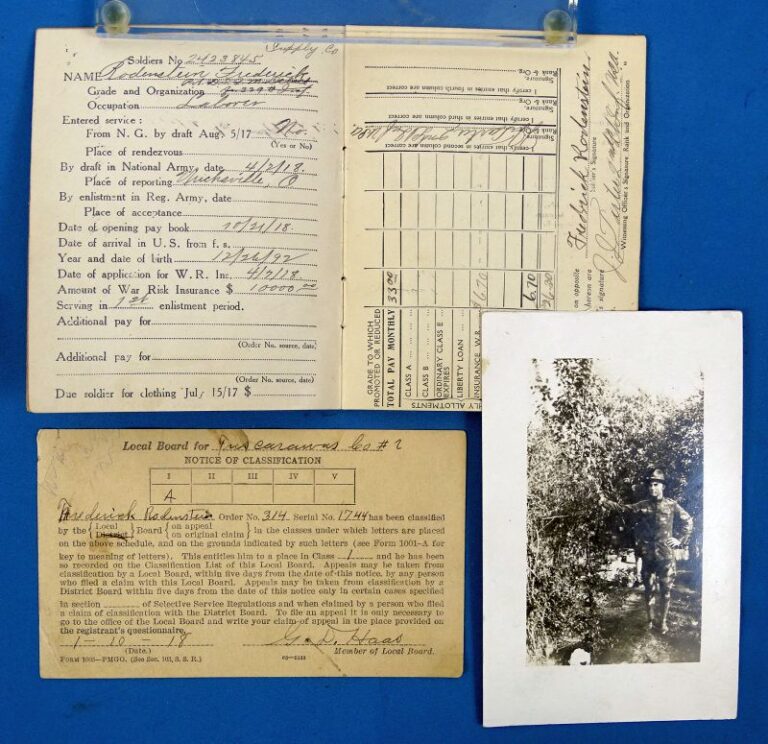 Supply Co
Soldiers No 2423845
NAME Rodenstein Frederick
Grade and Organization
Occupation Laborer
Entered service:
From N. G. by draft Aug. 5/17 No.
(Yes or No)
Place of rendezvous
By draft in National Army, date 4/2/18.
Place of reporting O
By enlistment in Reg. Army, date
Place of acceptance
Date of opening pay book 10/21/18.
Date of arrival in U.S. from f. s.
Year and date of birth 12/26/92
Date of application for W. R. Ins. 4/2/18.
Amount of War Risk Insurance $ 10000 00
Serving in 1st enlistment period.
Additional pay for
(Order No. source, date)
Additional pay for
(Order No. source, date)
Due soldier for clothing July 15/17 $
Signature
Rank & Org.
I certify that entries in fourth column are correct
Signature
Rank & Org.
I certify that entries in third column are correct
Signature
Rank & Org.
I certify that entries in second column are correct
GRADE TO WHICH
PROMOTED OR REDUCED
TOTAL PAY MONTHLY 33 00
CLASS A
CLASS B
ORDINARY CLASS E
EXPIRES
LIBERTY LOAN
INSURANCE W.R. 6.70
6.70
26.30
HLY ALLOTMENTS
on opposite
herein are
's signature
Frederick Rodenstein
Soldier's Signature
Witnessing Officer's Signature, Rank and Organization
Local Board for Tuscarawas Co # 2
NOTICE OF CLASSIFICATION
I II III IV V
A
Frederick Rodenstein Order No. 314 Serial No. 1744 has been classified
by the { Local District } Board { on appeal on original claim } in the classes under which letters are placed
on the above schedule, and on the grounds indicated by such letters (see Form 1001-A for
key to meaning of letters). This entitles him to a place in Class 1 and he has been
so recorded on the Classification List of this Local Board. Appeals may be taken from
classification by a Local Board, within five days from the date of this notice, by any person
who filed a claim with this Local Board. Appeals may be taken from classification by a
District Board within five days from the date of this notice only in certain cases specified
in section of Selective Service Regulations and when claimed by a person who filed
a claim of classification with the District Board. To file an appeal it is only necessary to
go to the office of the Local Board and write your claim of appeal in the place provided on
the registrant's questionnaire.
1-10-18 G. D. Haas
(Date.) Member of Local Board.
FORM 1005-PMGO. (See Sec. 103, S. S. R.)